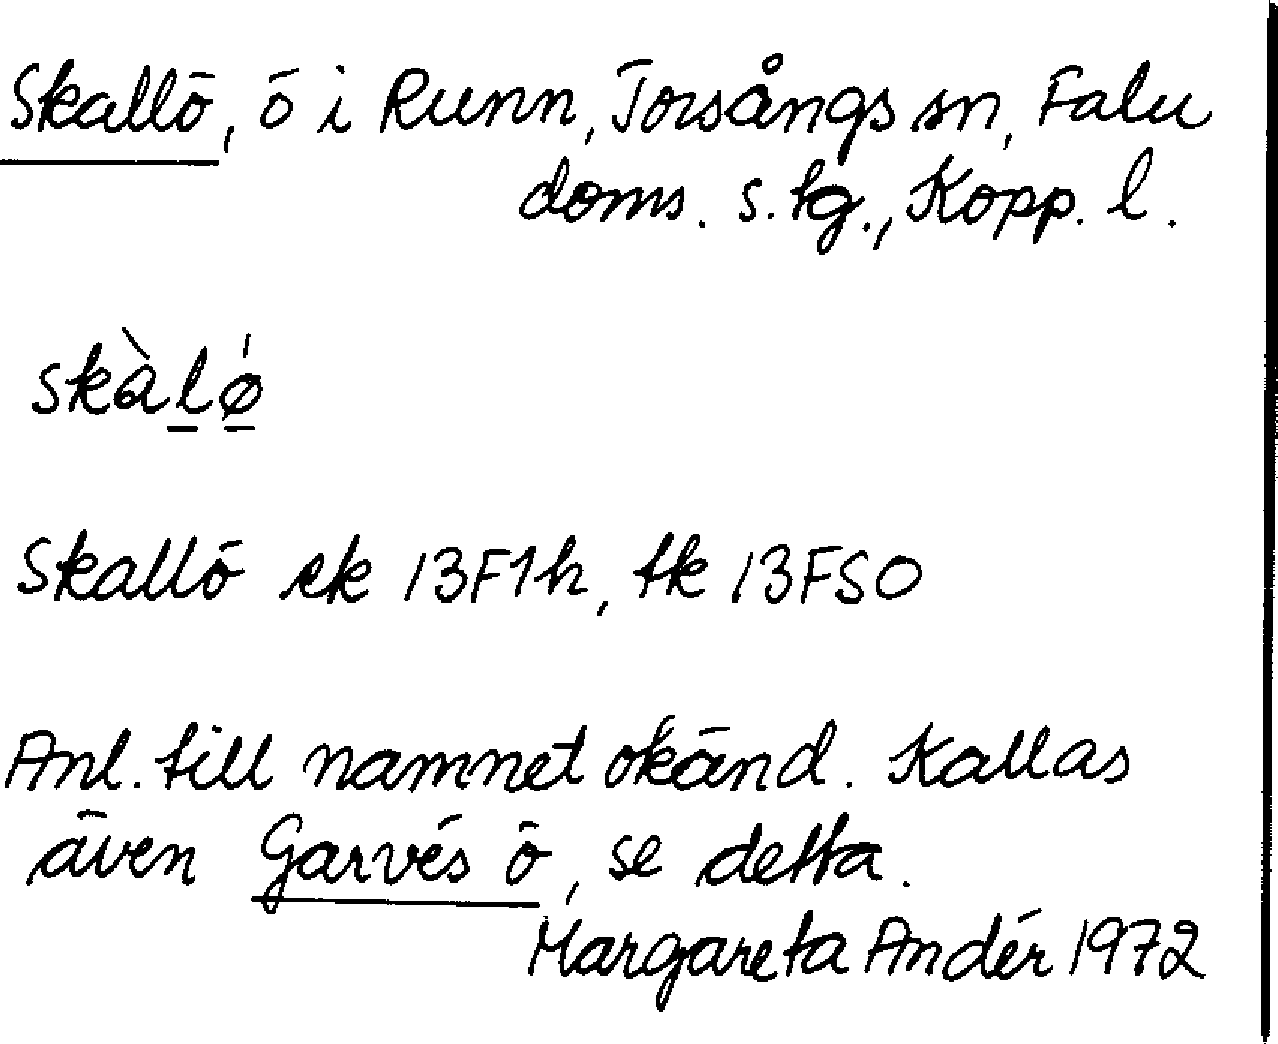 Skallö, ö i Runn, Torsångs sn, Falu
doms. s. tg., Kopp. l.
skàl̲ø̲̍
Skallö ek 13F1h, tk 13FSO
Anl. till namnet okänd. Kallas
även Garvés ö, se detta.
Margareta Andér 1972